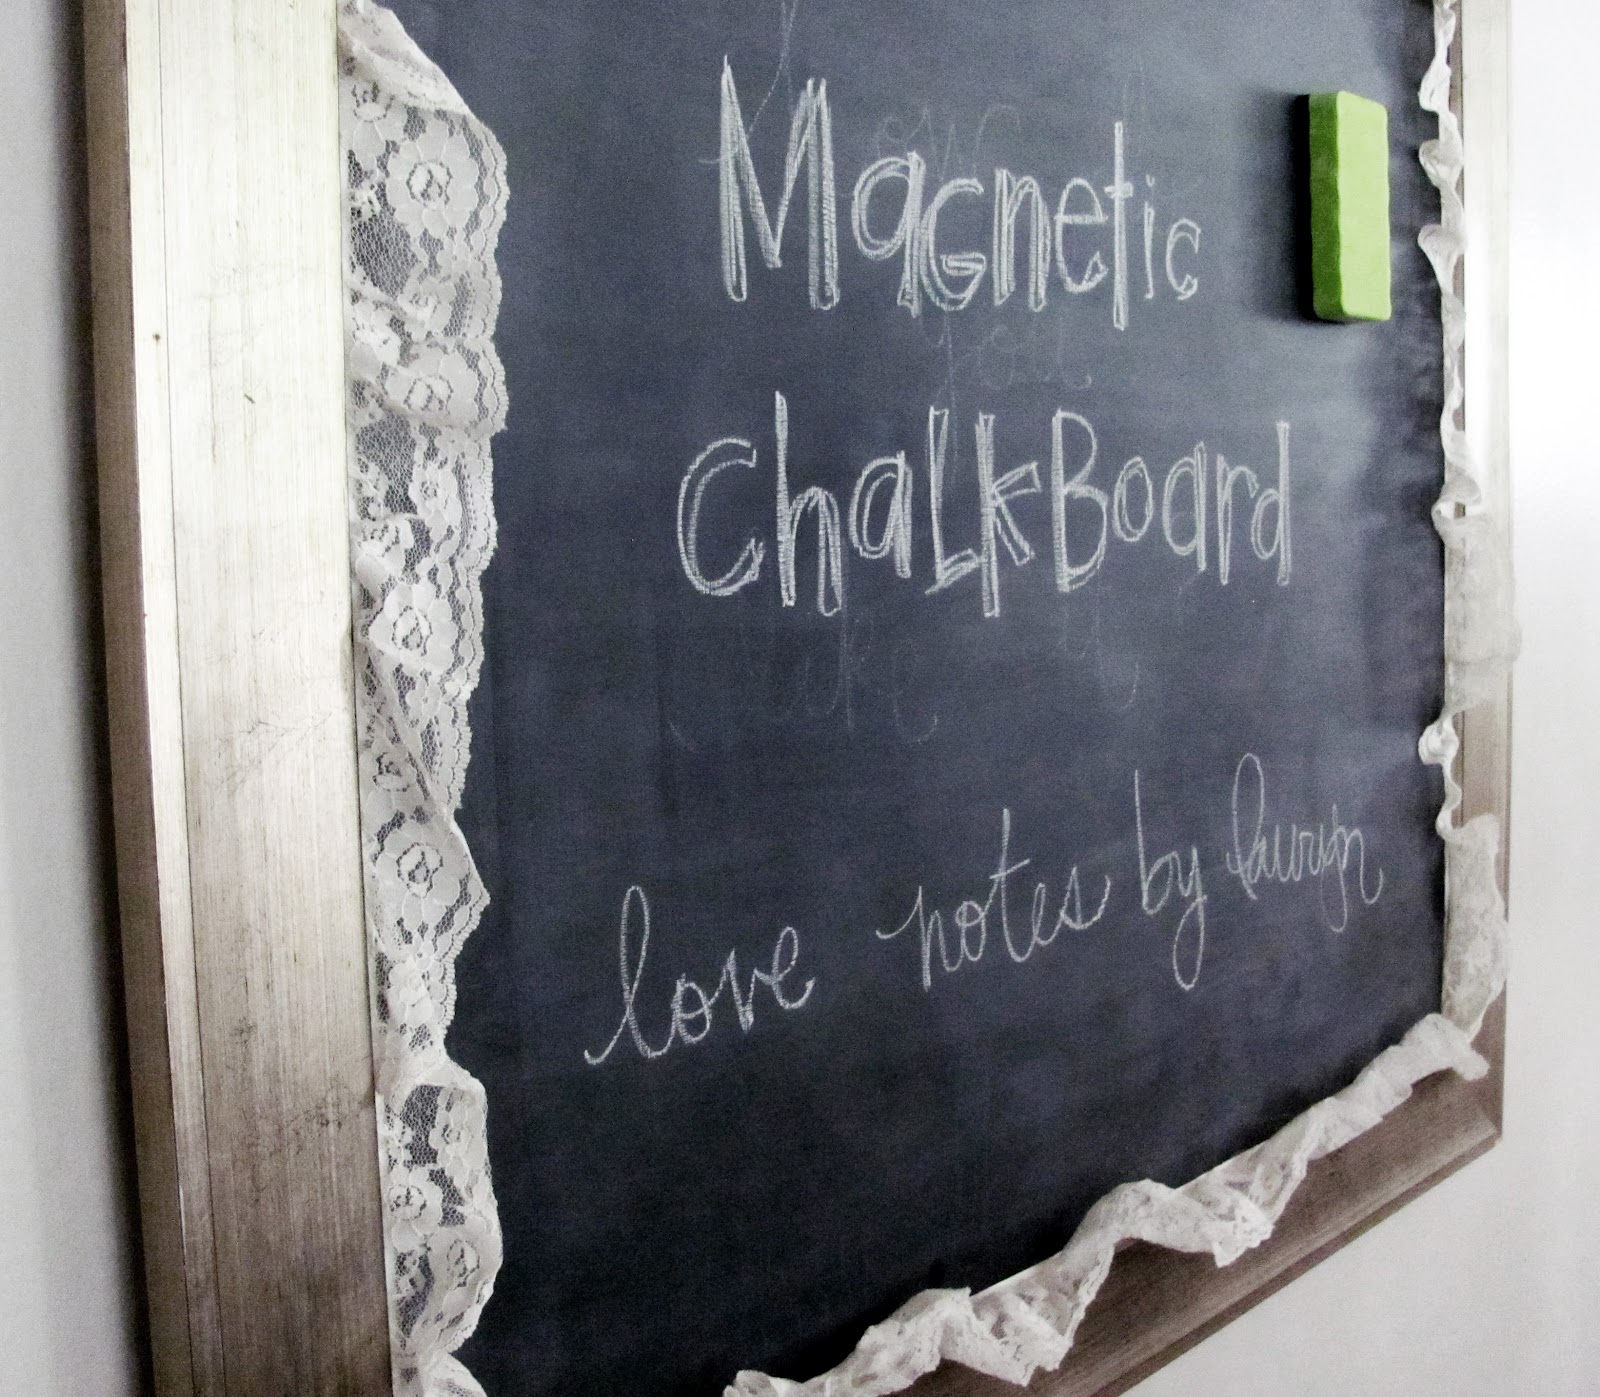 Magnetic
ChalkBoard
love notes by lauryn